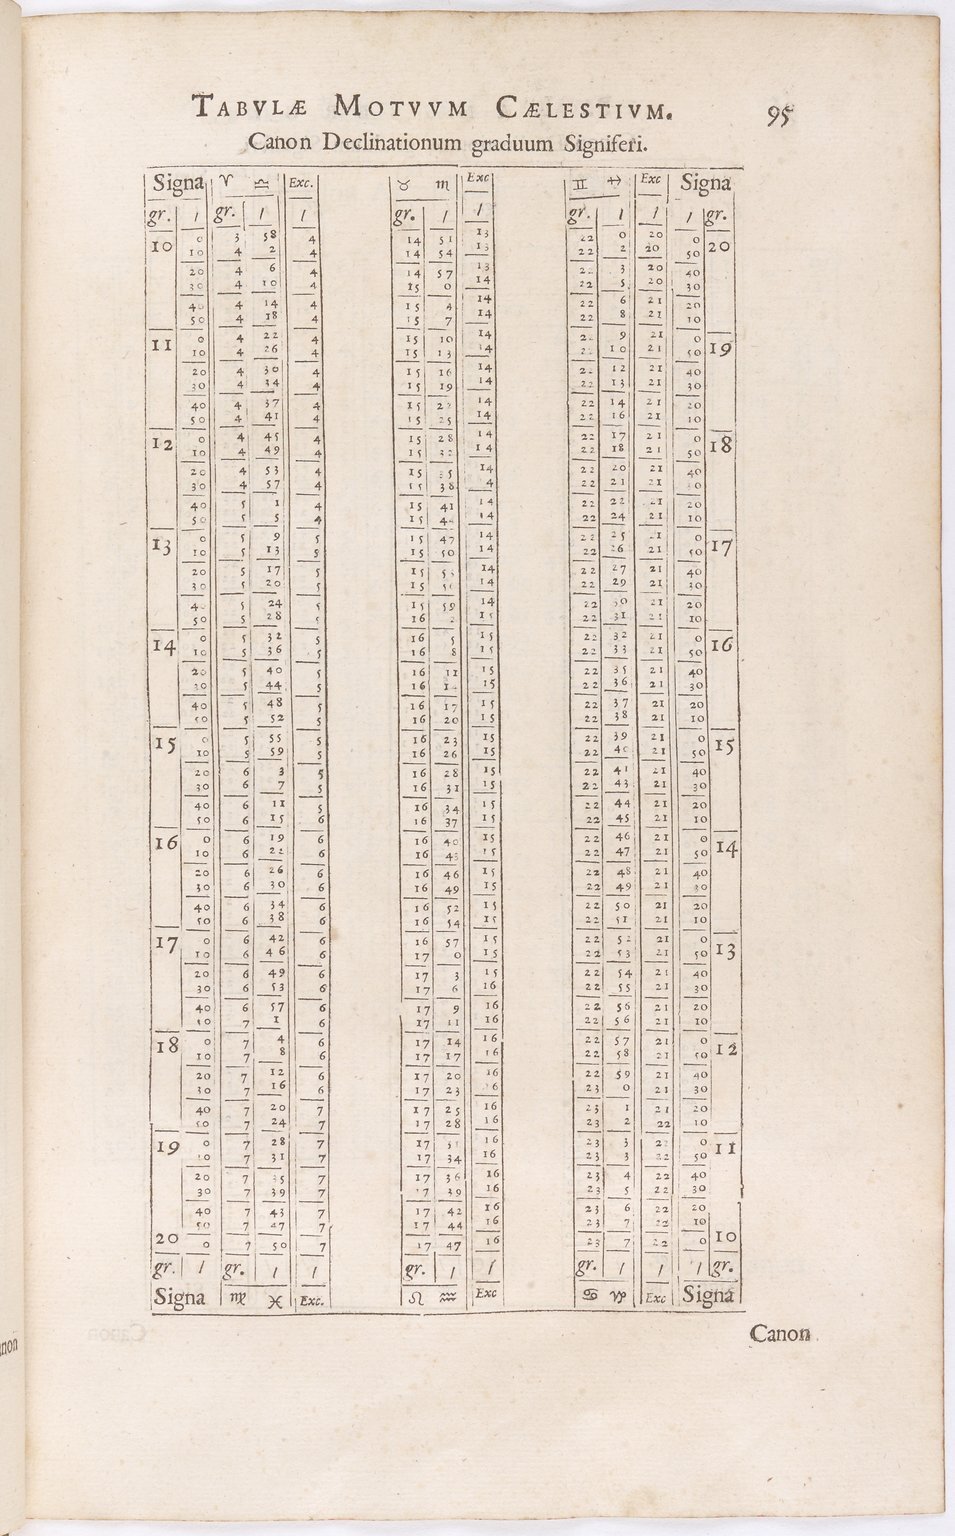 TABVLÆ MOTVVM CÆLESTIVM. 95
Canon Declinationum graduum Signiferi.
Signa ♈ ♎ Exc. ♉ ♏ Exc ♊ ♐ Exc Signa
gr. / gr. / / gr. / / gr. / / / gr.
10 0 3 58 4 14 51 13 22 0 20 0 20
10 4 2 4 14 54 13 22 2 20 50
20 4 6 4 14 57 13 22 3 20 40
30 4 10 4 15 0 14 22 5 20 30
40 4 14 4 15 4 14 22 6 21 20
50 4 18 4 15 7 14 22 8 21 10
11 0 4 22 4 15 10 14 22 9 21 0 19
10 4 26 4 15 13 14 22 10 21 50
20 4 30 4 15 16 14 22 12 21 40
30 4 34 4 15 19 14 22 13 21 30
40 4 37 4 15 22 14 22 14 21 20
50 4 41 4 15 25 14 22 16 21 10
12 0 4 45 4 15 28 14 22 17 21 0 18
10 4 49 4 15 32 14 22 18 21 50
20 4 53 4 15 35 14 22 20 21 40
30 4 57 4 15 38 4 22 21 21 30
40 5 1 4 15 41 14 22 22 21 20
50 5 5 4 15 44 14 22 24 21 10
13 0 5 9 5 15 47 14 22 25 21 0 17
10 5 13 5 15 50 14 22 26 21 50
20 5 17 5 15 53 14 22 27 21 40
30 5 20 5 15 56 14 22 29 21 30
40 5 24 5 15 59 14 22 30 21 20
50 5 28 5 16 2 15 22 31 21 10
14 0 5 32 5 16 5 15 22 32 21 0 16
10 5 36 5 16 8 15 22 33 21 50
20 5 40 5 16 11 15 22 35 21 40
30 5 44 5 16 14 15 22 36 21 30
40 5 48 5 16 17 15 22 37 21 20
50 5 52 5 16 20 15 22 38 21 10
15 0 5 55 5 16 23 15 22 39 21 0 15
10 5 59 5 16 26 15 22 40 21 50
20 6 3 5 16 28 15 22 41 21 40
30 6 7 5 16 31 15 22 43 21 30
40 6 11 5 16 34 15 22 44 21 20
50 6 15 6 16 37 15 22 45 21 10
16 0 6 19 6 16 40 15 22 46 21 0 14
10 6 22 6 16 43 15 22 47 21 50
20 6 26 6 16 46 15 22 48 21 40
30 6 30 6 16 49 15 22 49 21 30
40 6 34 6 16 52 15 22 50 21 20
50 6 38 6 16 54 15 22 51 21 10
17 0 6 42 6 16 57 15 22 52 21 0 13
10 6 46 6 17 0 15 22 53 21 50
20 6 49 6 17 3 15 22 54 21 40
30 6 53 6 17 6 16 22 55 21 30
40 6 57 6 17 9 16 22 56 21 20
50 7 1 6 17 11 16 22 56 21 10
18 0 7 4 6 17 14 16 22 57 21 0 12
10 7 8 6 17 17 16 22 58 21 50
20 7 12 6 17 20 16 22 59 21 40
30 7 16 6 17 23 16 23 0 21 30
40 7 20 7 17 25 16 23 1 21 20
50 7 24 7 17 28 16 23 2 22 10
19 0 7 28 7 17 31 16 23 3 22 0 11
10 7 31 7 17 34 16 23 3 22 50
20 7 35 7 17 36 16 23 4 22 40
30 7 39 7 17 39 16 23 5 22 30
40 7 43 7 17 42 16 23 6 22 20
50 7 47 7 17 44 16 23 7 22 10
20 0 7 50 7 17 47 16 23 7 22 0 10
gr. / gr. / / gr. / / gr. / / / gr.
Signa ♍ ♓ Exc. ♌ ♒ Exc ♋ ♑ Exc Signa
Canon